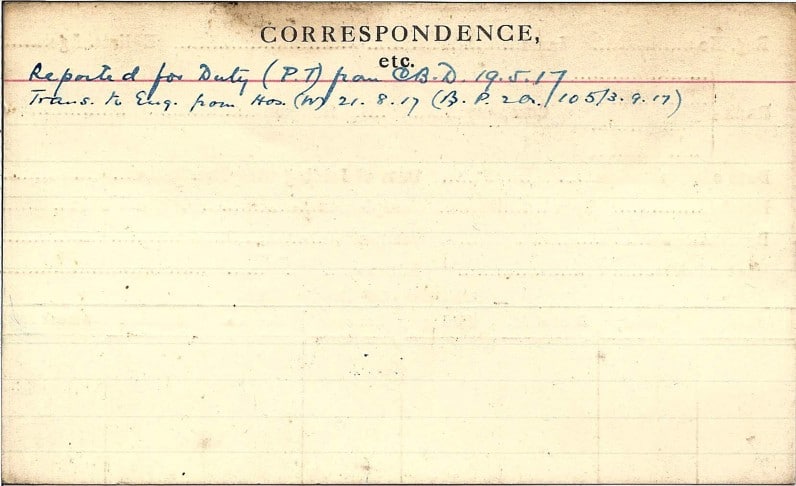 CORRESPONDENCE,
etc.
Reported for Duty (P.T) from C.B.D. 19.5.17
Trans. to Eng. from Hos. (W) 21.8.17 (B. P. 20/105/3.9.17)